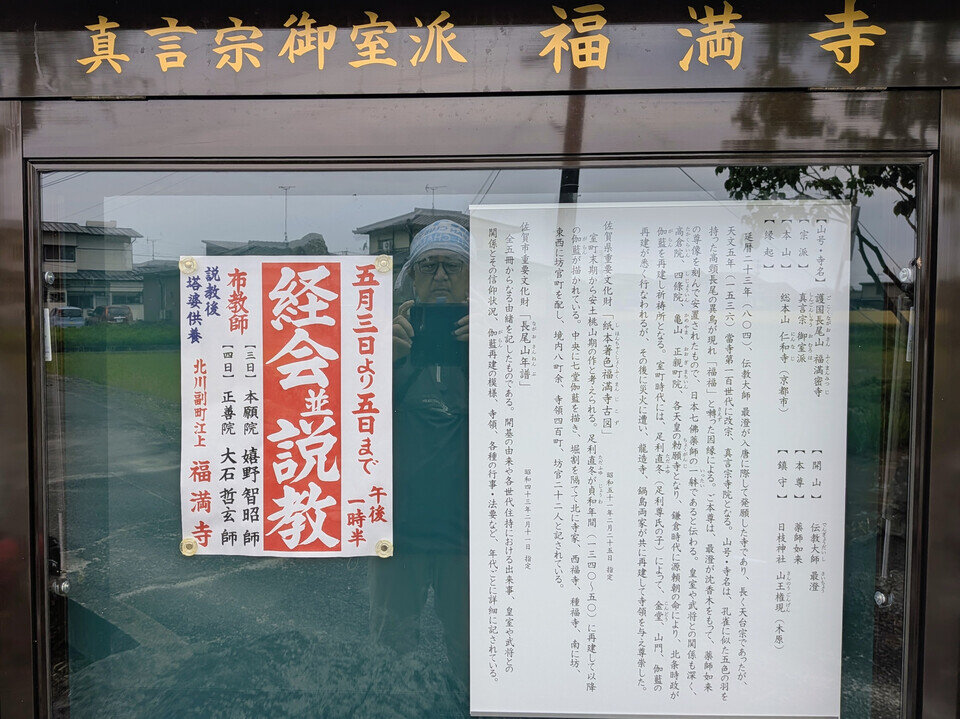 真言宗御室派 福満寺
五月三日より五日まで 午後一時半
経会並説教
布教師 【三日】本願院 嬉野智昭師
【四日】正善院 大石哲玄師
説教後
塔婆供養
北川副町江上 福満寺
【山号・寺名】 護国長尾山 福満密寺
【宗派】 真言宗 御室派
【本山】 総本山 仁和寺(京都市)
【開山】 伝教大師 最澄
【本尊】 薬師如来
【鎮守】 日枝神社 山王権現(木原)
【縁起】
延暦二十三年(八〇四)、伝教大師 最澄が入唐に際して発願した寺であり、長く天台宗であったが、
天文五年(一五三六)當寺第一百世代に改宗、真言宗寺院となる。山号・寺名は、孔雀に似た五色の羽を
持った高頸長尾の異鳥が現れ「福福」と囀った因縁による。ご本尊は、最澄が沈香木をもって、薬師如来
の尊像を刻んで安置されたもので、日本七佛薬師の一躰であると伝わる。皇室や武将との関係も深く、
高倉院、四條院、亀山、正親町院、各天皇の勅願寺となり、鎌倉時代に源頼朝の命により、北条時政が
伽藍を再建し祈祷所となる。室町時代には、足利直冬(足利尊氏の子)によって、金堂、山門、伽藍の
再建が悉く行なわれるが、その後に災火に遭い、龍造寺、鍋島両家が共に再建して寺領を与え尊崇した。
佐賀県重要文化財 「紙本著色福満寺古図」 昭和五十一年二月二十五日 指定
室町末期から安土桃山期の作と考えられる。足利直冬が貞和年間(一三四〇〜五〇)に再建して以降
の伽藍が描かれている。中央に七堂伽藍を描き、堀割を隔てて北に寺家、西福寺、種福寺、南に坊、
東西に坊官町を配し、境内八町余、寺領四百町、坊官二十二人と記されている。
佐賀市重要文化財 「長尾山年譜」 昭和四十三年二月十一日 指定
全五冊からなる由緒を記したものである。開基の由来や各世代住持における出来事、皇室や武将との
関係とその信仰状況、伽藍再建の模様、寺領、各種の行事・法要など、年代ごとに詳細に記されている。